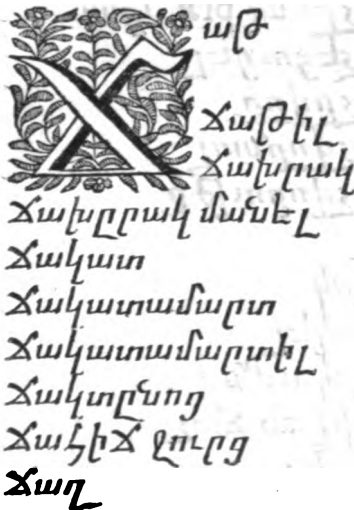 Ճաթ
Ճաթիլ
Ճախրակ
Ճախըրակ մանել
Ճակատ
Ճակատամարտ
Ճակատամարտիլ
Ճակտընոց
Ճահիճ ջուրց
Ճաղ